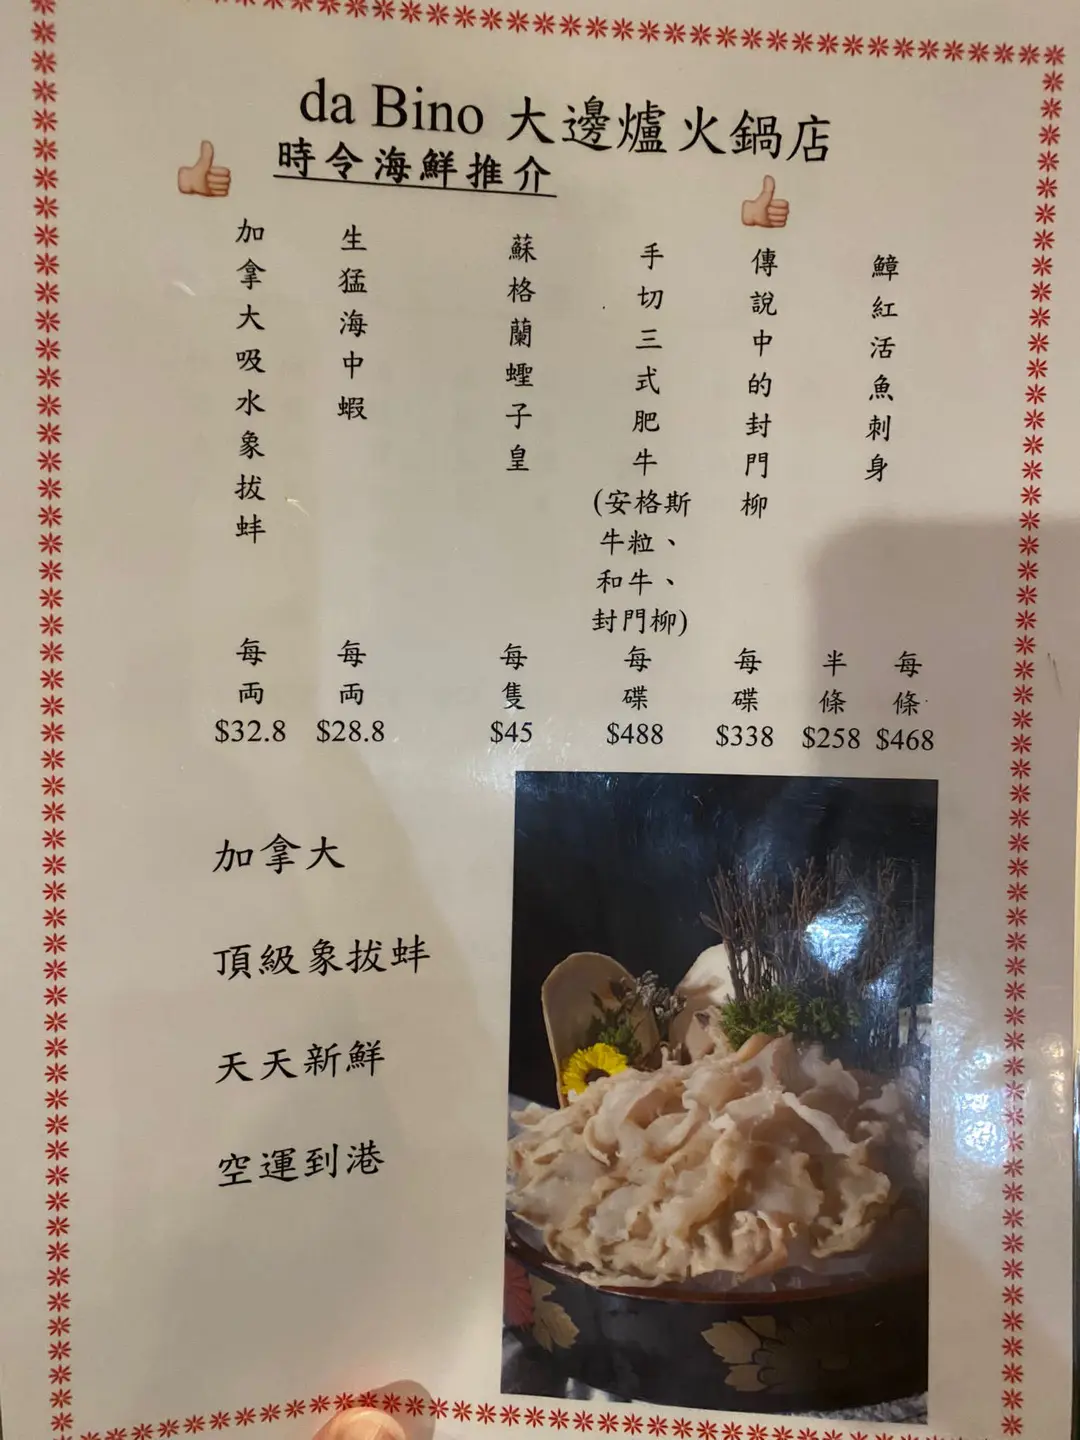 da Bino 大邊爐火鍋店
時令海鮮推介
鱆紅活魚刺身
半條
$258
每條
$468
傳說中的封門柳
每碟
$338
手切三式肥牛
(安格斯
牛粒、
和牛、
封門柳)
每碟
$488
蘇格蘭蟶子皇
每隻
$45
生猛海中蝦
每両
$28.8
加拿大吸水象拔蚌
每両
$32.8
加拿大
頂級象拔蚌
天天新鮮
空運到港